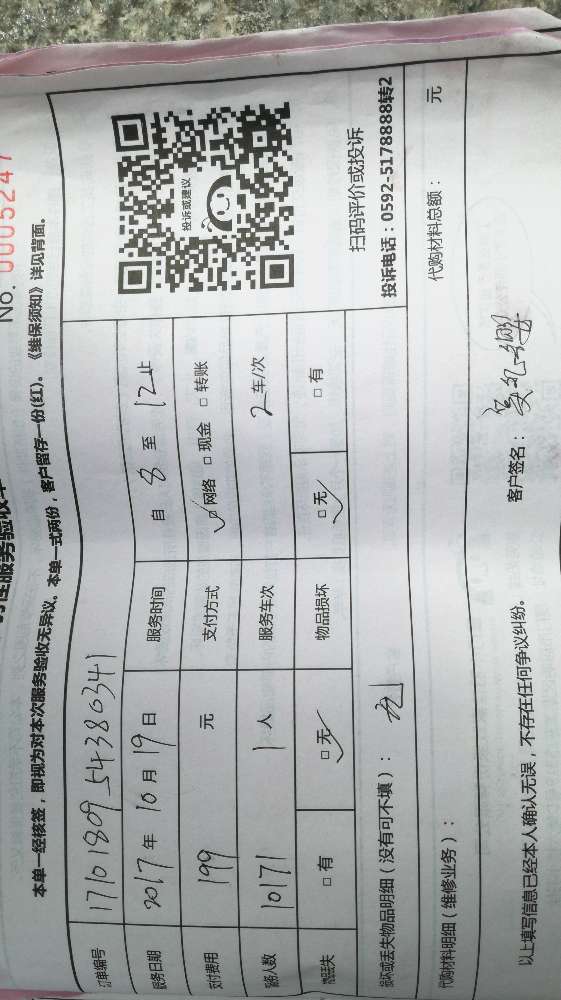 No. 0005247
性服务验收
本单一经核签，即视为对本次服务验收无异议。本单一式两份，客户留存一份(红)。《维保须知》详见背面。
订单编号 17101809_54380341
服务日期 2017 年 10 月 19 日 服务时间 自 8 至 12 止
支付费用 199 元 支付方式 □ 网络 □ 现金 □ 转账
人数 10171 1 人 服务车次 2 车/次
丢失 □ 有 □ 无 物品损坏 □ 无 □ 有
投诉或建议
扫码评价或投诉
投诉电话：0592-5178888转2
损坏或丢失物品明细（没有可不填）： 无
代购材料明细（维修业务）： 代购材料总额： 元
以上填写信息已经本人确认无误，不存在任何争议纠纷。 客户签名：